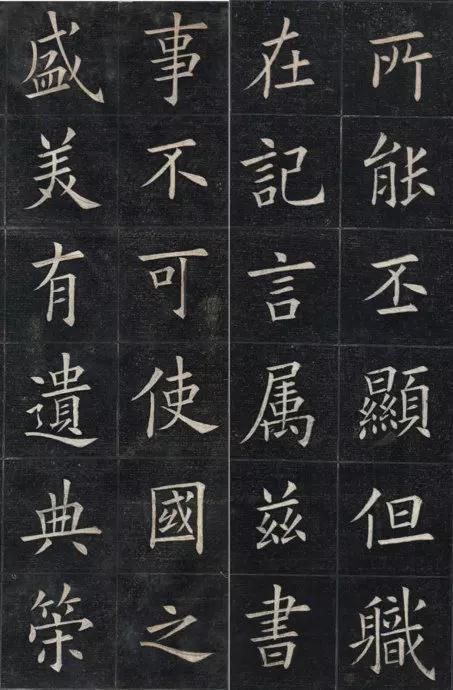 所能丕顯但職
在記言属兹書
事不可使國之
盛美有遺典策